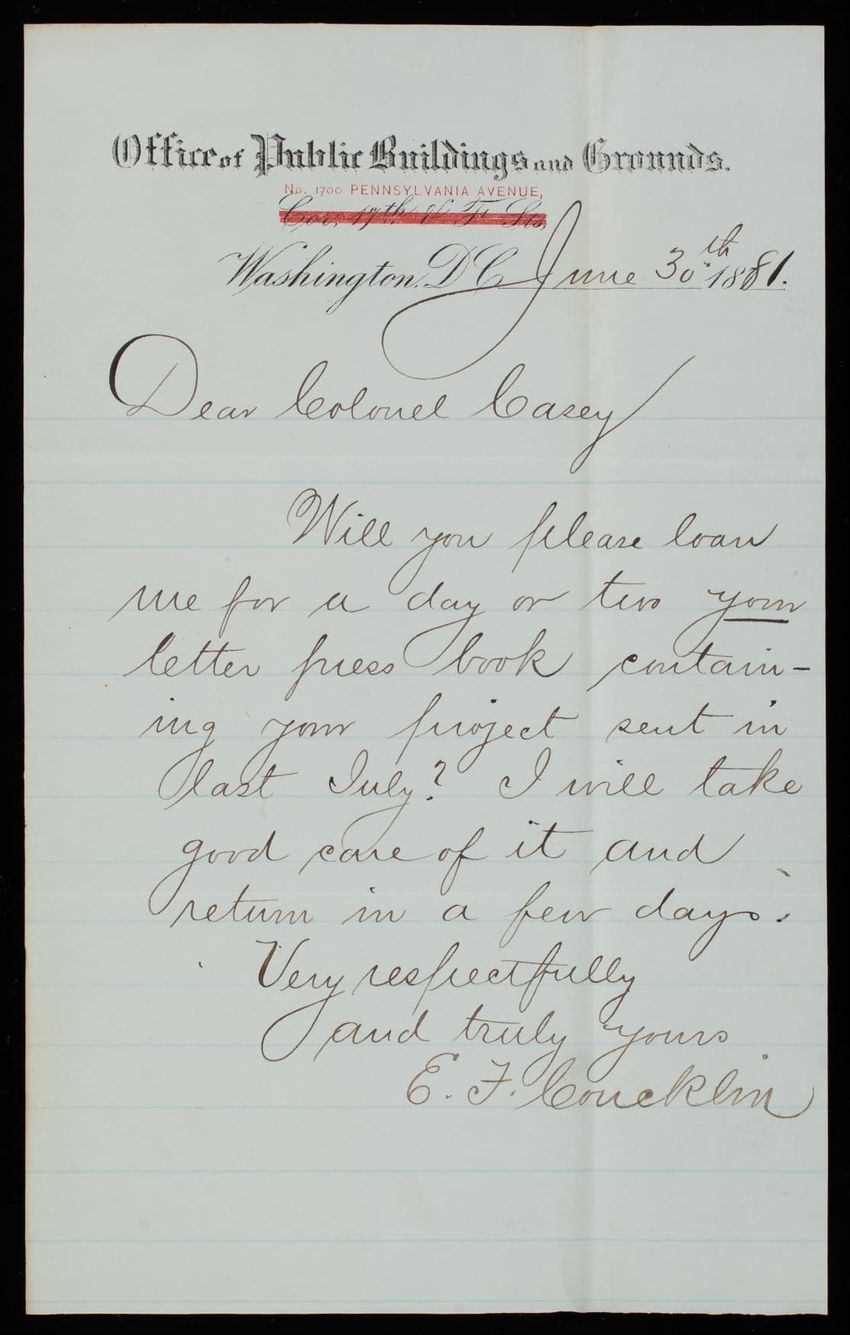 Office of Public Buildings and Grounds.
No. 1700 PENNSYLVANIA AVENUE,
Cor. 17th & F Sts,
Washington, D C June 30th 1881.
Dear Colonel Casey
Will you please loan
me for a day or two your
letter press book contain-
ing your project sent in
last July? I will take
good care of it and
return in a few days.
Very respectfully
and truly yours
E. F. Concklin